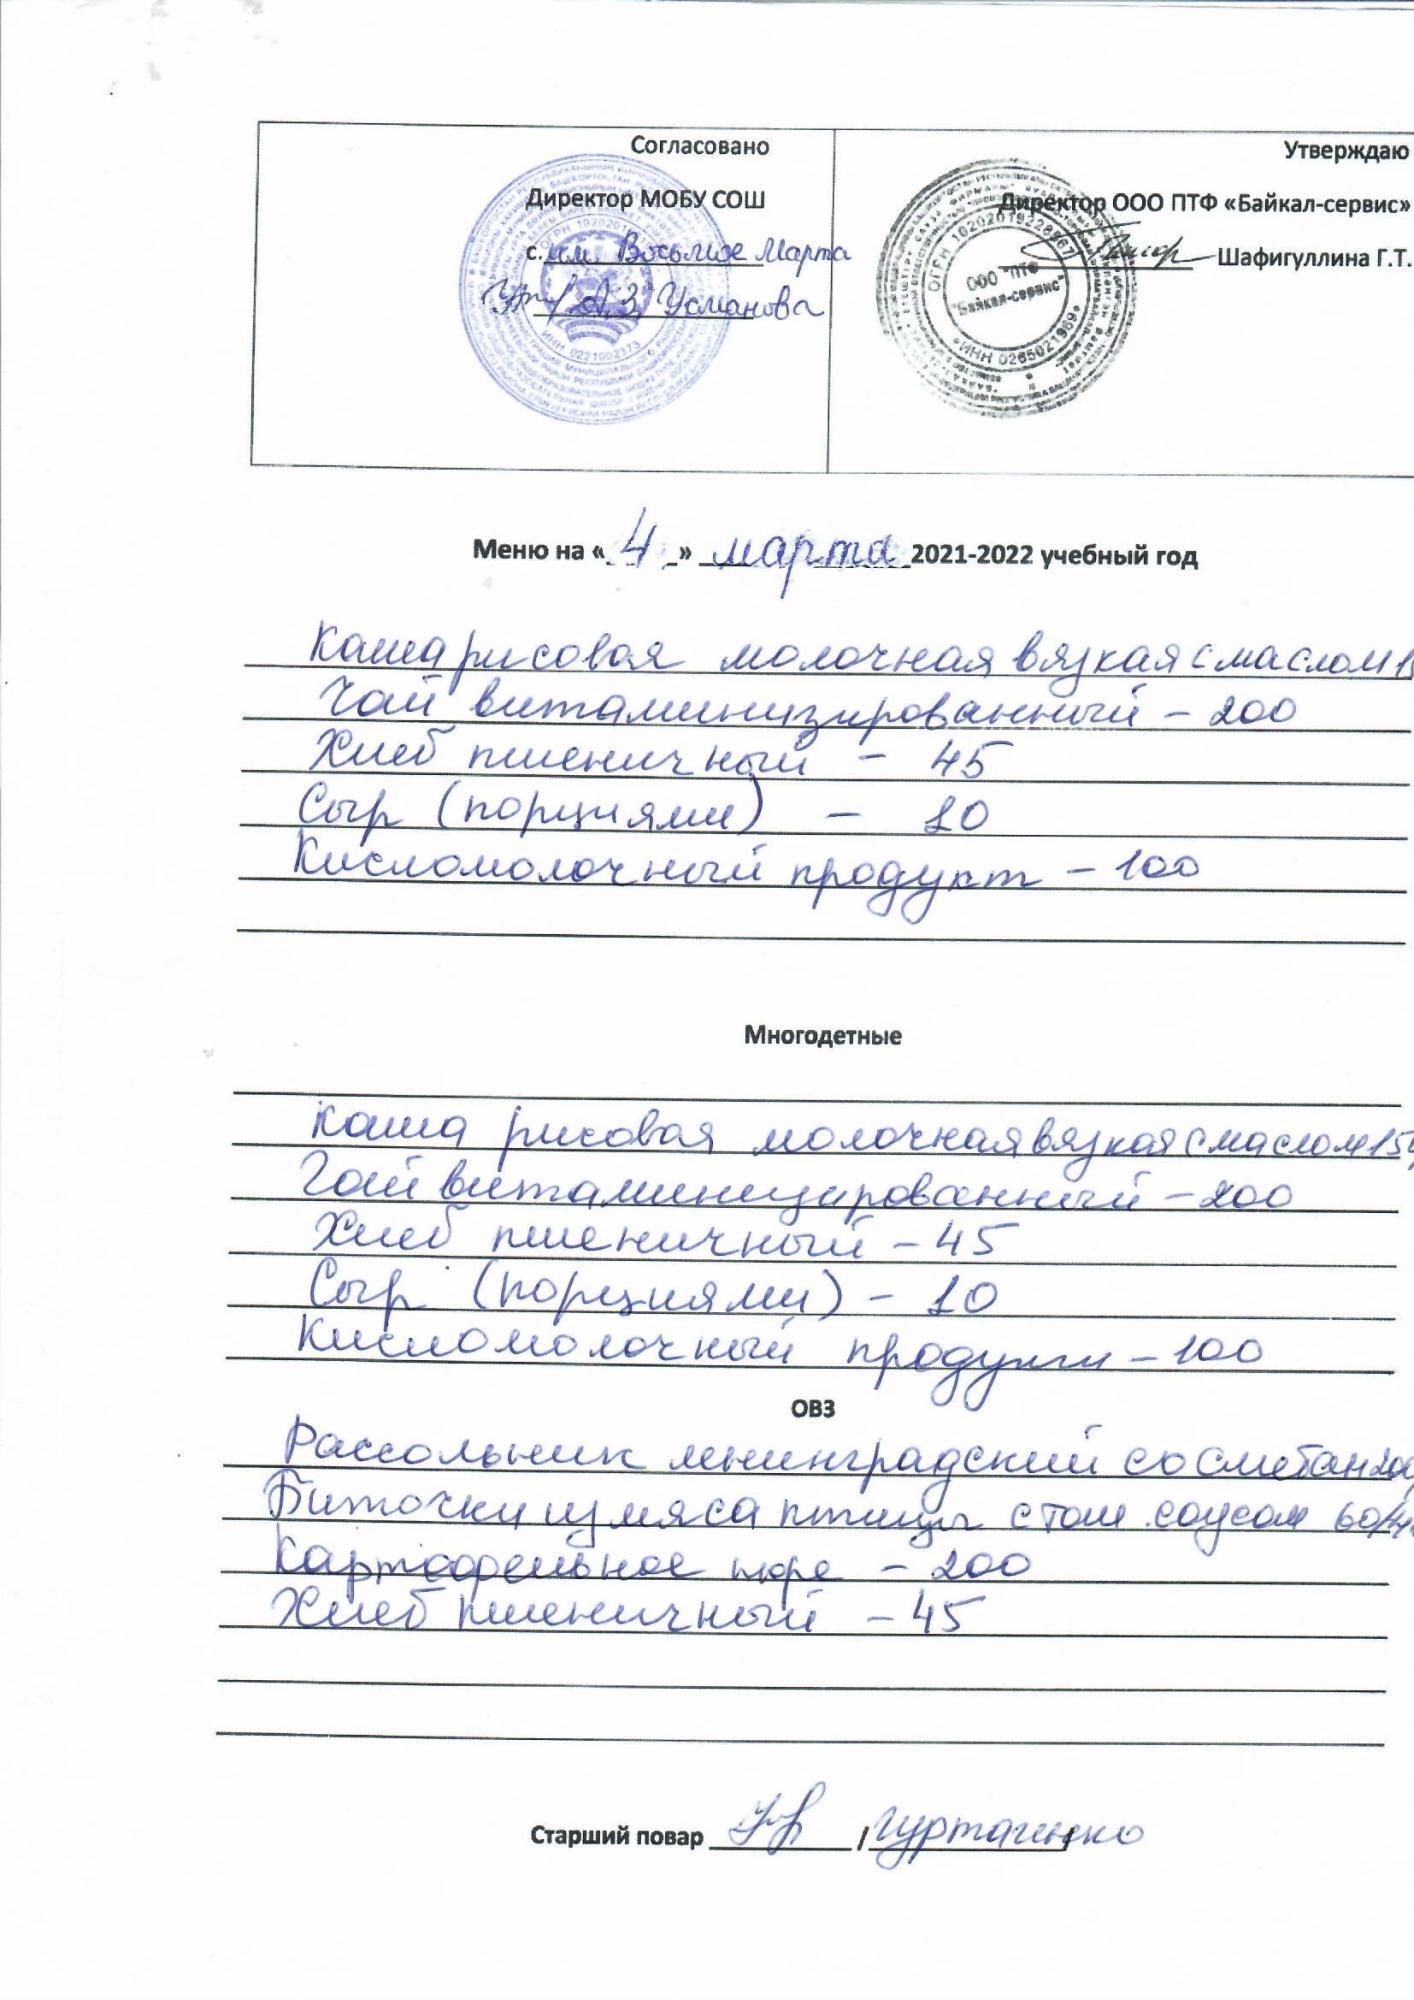 Согласовано
Директор МОБУ СОШ
с. им. Восьмое Марта
А.З. Усманова
ОГРН
ИНН 0221002373
Утверждаю
Директор ООО ПТФ «Байкал-сервис»
Шафигуллина Г.Т.
ОГРН 1020201922896
ООО "ПТФ
"Байкал-сервис"
ИНН 0265021969
Меню на « 4 » марта 2021-2022 учебный год
Каша рисовая молочная вязкая с маслом
Чай витаминизированный – 200
Хлеб пшеничный – 45
Сыр (порциями) – 10
Кисломолочный продукт – 100
Многодетные
Каша рисовая молочная вязкая с маслом 15
Чай витаминизированный – 200
Хлеб пшеничный – 45
Сыр (порциями) – 10
Кисломолочный продукт – 100
ОВЗ
Рассольник ленинградский со сметан 200
Биточки из мяса птицы с том. соусом 60/4
Картофельное пюре – 200
Хлеб пшеничный – 45
Старший повар / /